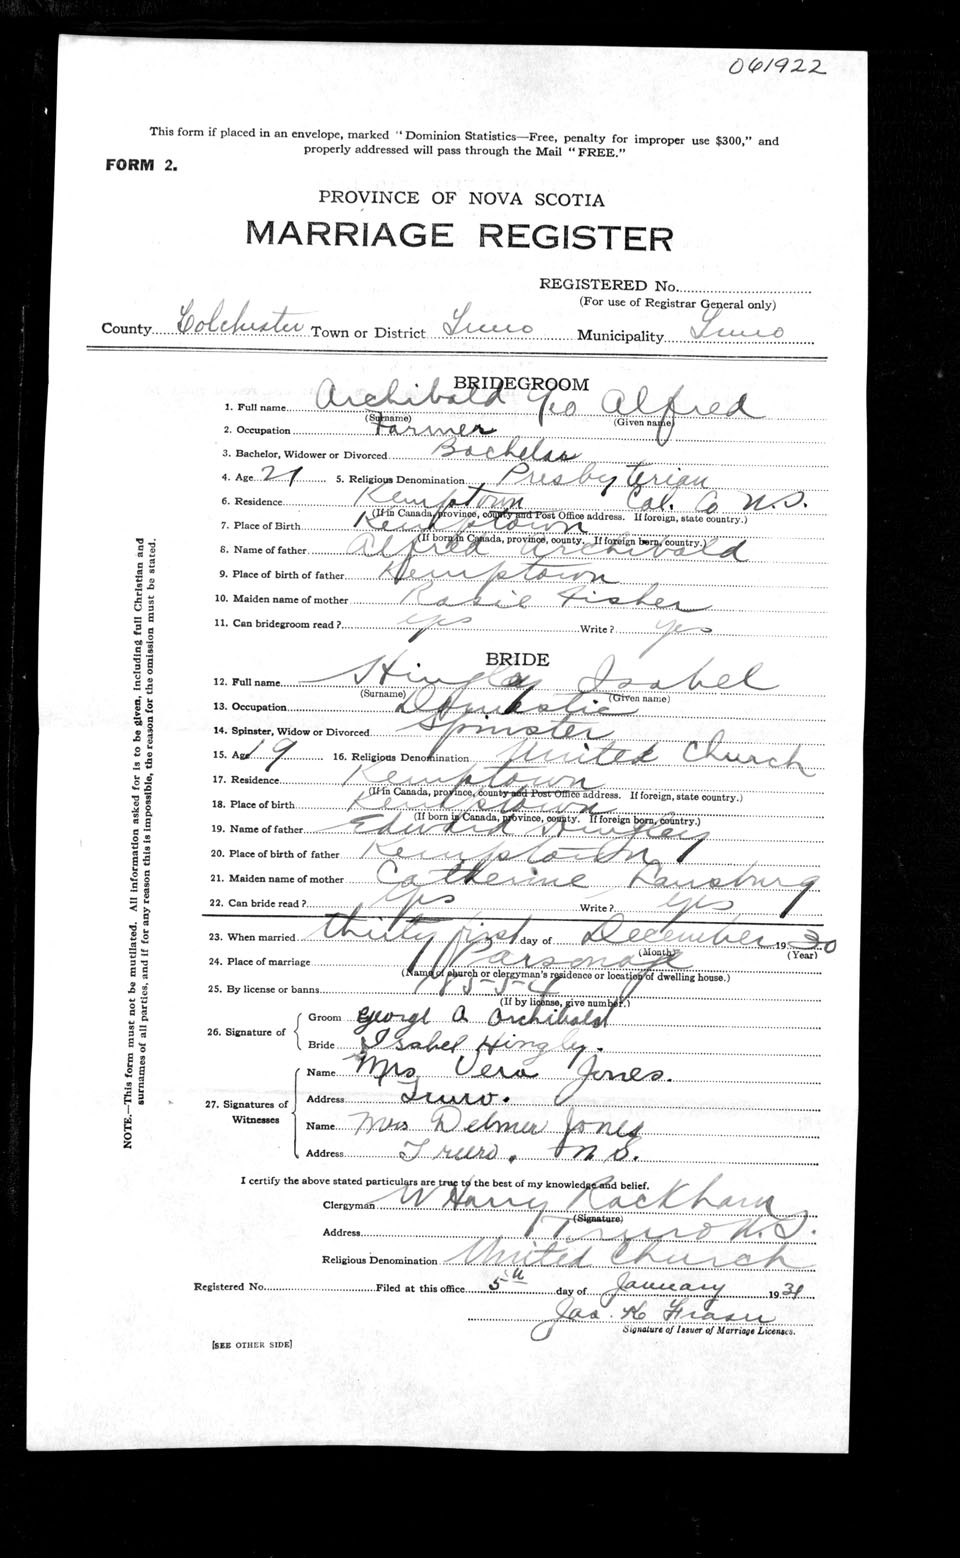 061922
This form if placed in an envelope, marked "Dominion Statistics—Free, penalty for improper use $300," and
properly addressed will pass through the Mail "FREE."
FORM 2.
PROVINCE OF NOVA SCOTIA
MARRIAGE REGISTER
REGISTERED No.
(For use of Registrar General only)
County Colchester Town or District Truro Municipality Truro
BRIDEGROOM
1. Full name Archibald Geo Alfred
(Surname) (Given name)
2. Occupation Farmer
3. Bachelor, Widower or Divorced Bachelor
4. Age 21 5. Religious Denomination Presbyterian
6. Residence Kemptown Col. Co N.S.
(If in Canada, province, county and Post Office address. If foreign, state country.)
7. Place of Birth Kemptown
(If born in Canada, province, county. If foreign born, country.)
8. Name of father Alfred Archibald
9. Place of birth of father Kemptown
10. Maiden name of mother Rosie Fisher
11. Can bridegroom read? yes Write? yes
BRIDE
12. Full name Hingley Isabel
(Surname) (Given name)
13. Occupation Domestic
14. Spinster, Widow or Divorced Spinster
15. Age 19 16. Religious Denomination United Church
17. Residence Kemptown
(If in Canada, province, county and Post Office address. If foreign, state country.)
18. Place of birth Kemptown
(If born in Canada, province, county. If foreign born, country.)
19. Name of father Edward Hingley
20. Place of birth of father Kemptown
21. Maiden name of mother Catherine
22. Can bride read? yes Write? yes
23. When married thirty first day of December 1930
(Month) (Year)
24. Place of marriage Parsonage
(Name of church or clergyman's residence or location of dwelling house.)
25. By license or banns
(If by license, give number.)
26. Signature of
Groom George A Archibald
Bride Isabel Hingley.
27. Signatures of Witnesses
Name Mrs Vera Jones.
Address Truro.
Name Mrs Delmer Jones
Address Truro, N S.
I certify the above stated particulars are true to the best of my knowledge and belief.
Clergyman W Harry Rackham
(Signature)
Address Truro N.S.
Religious Denomination United Church
Registered No. Filed at this office 5th day of January 1931
Jas. K Fraser
Signature of Issuer of Marriage Licenses.
[SEE OTHER SIDE]
NOTE.—This form must not be mutilated. All information asked for is to be given, including full Christian and
surnames of all parties, and if for any reason this is impossible, the reason for the omission must be stated.